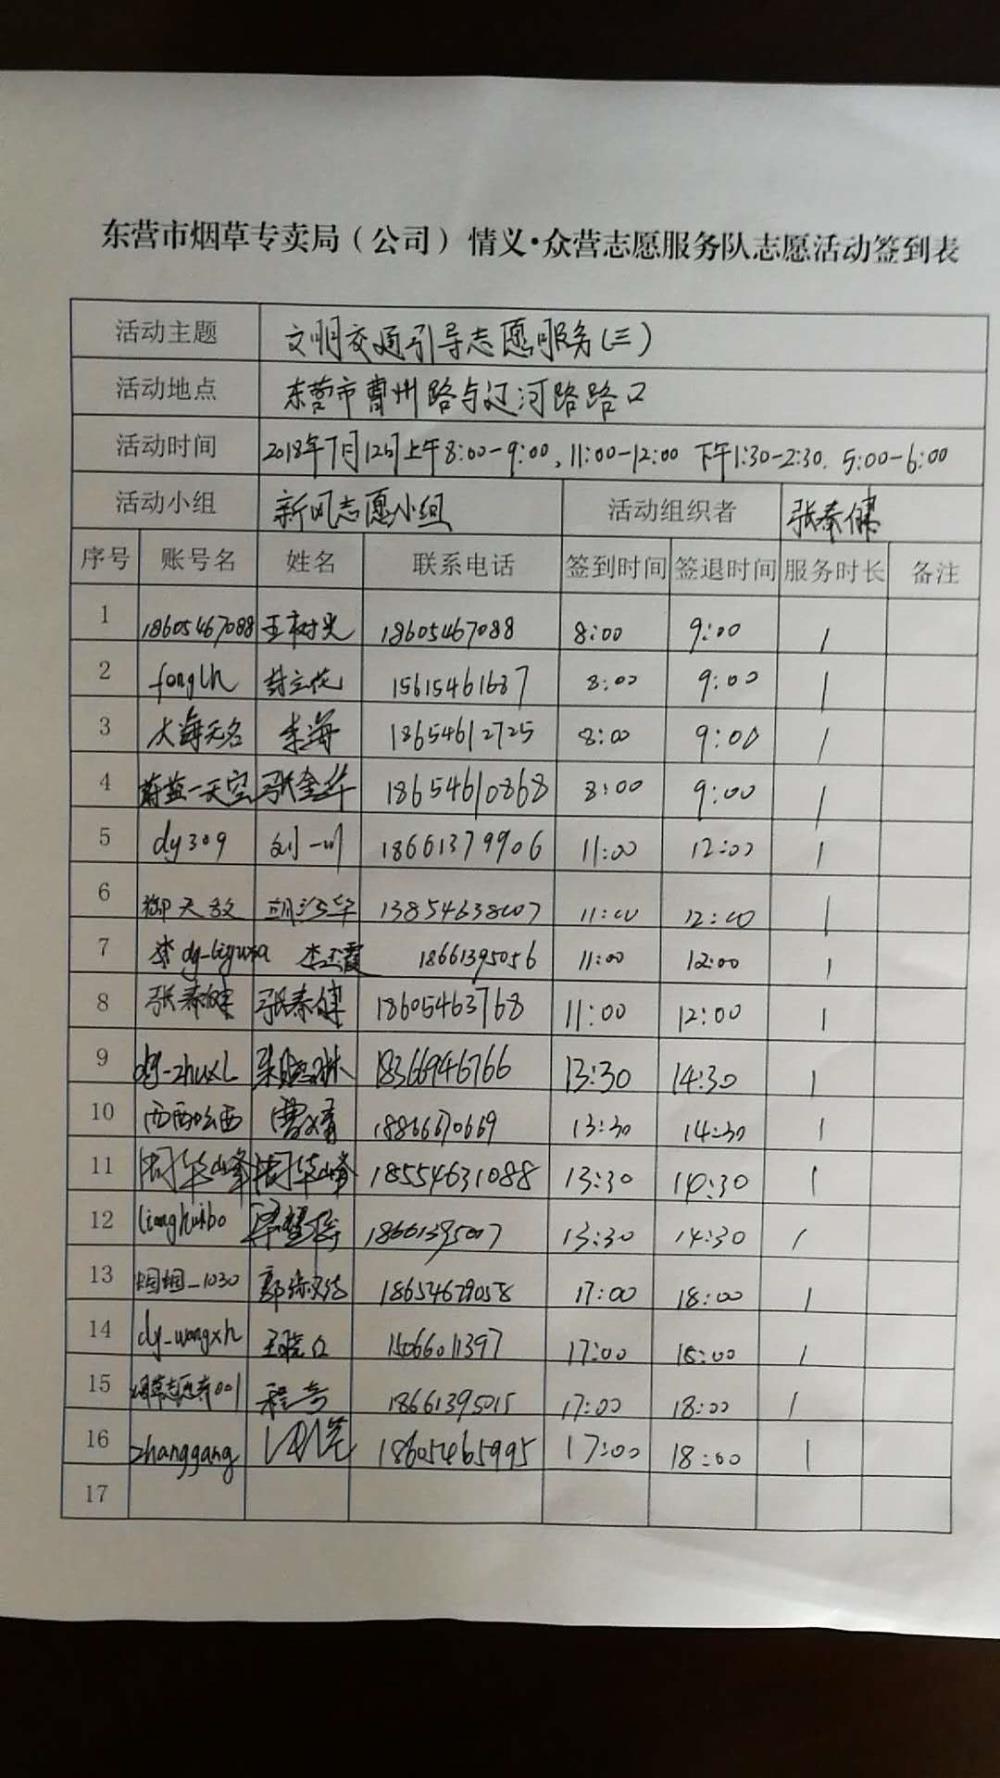 东营市烟草专卖局（公司）情义·众营志愿服务队志愿活动签到表
活动主题 文明交通引导志愿服务(三)
活动地点 东营市曹州路与辽河路路口
活动时间 2018年7月12日上午8:00-9:00、11:00-12:00 下午1:30-2:30. 5:00-6:00
活动小组 新风志愿小组 活动组织者 张秦健
序号 账号名 姓名 联系电话 签到时间 签退时间 服务时长 备注
1 18605467088 王树光 18605467088 8:00 9:00 1
2 fenglh 封立花 15615461687 8:00 9:00 1
3 大海无名 李海 18654612725 8:00 9:00 1
4 蔚蓝一天空 张奎华 18654610868 8:00 9:00 1
5 dy309 刘一川 18661379906 11:00 12:00 1
6 胡江华 13854638007 11:00 12:00 1
7 李玉霞 18661395056 11:00 12:00 1
8 张秦健 张秦健 18605463768 11:00 12:00 1
9 dy-zhuxl 18366946766 13:30 14:30 1
10 西西么西 曹文青 18866670669 13:30 14:30 1
11 周华峰 周华峰 18554631088 13:30 14:30 1
12 lianghuibo 18661395007 13:30 14:30 1
13 烟烟_1030 18654629058 17:00 18:00 1
14 dy-wangxh 15066011397 17:00 18:00 1
15 程奇 18661395015 17:00 18:00 1
16 zhanggang 18605465995 17:00 18:00 1
17